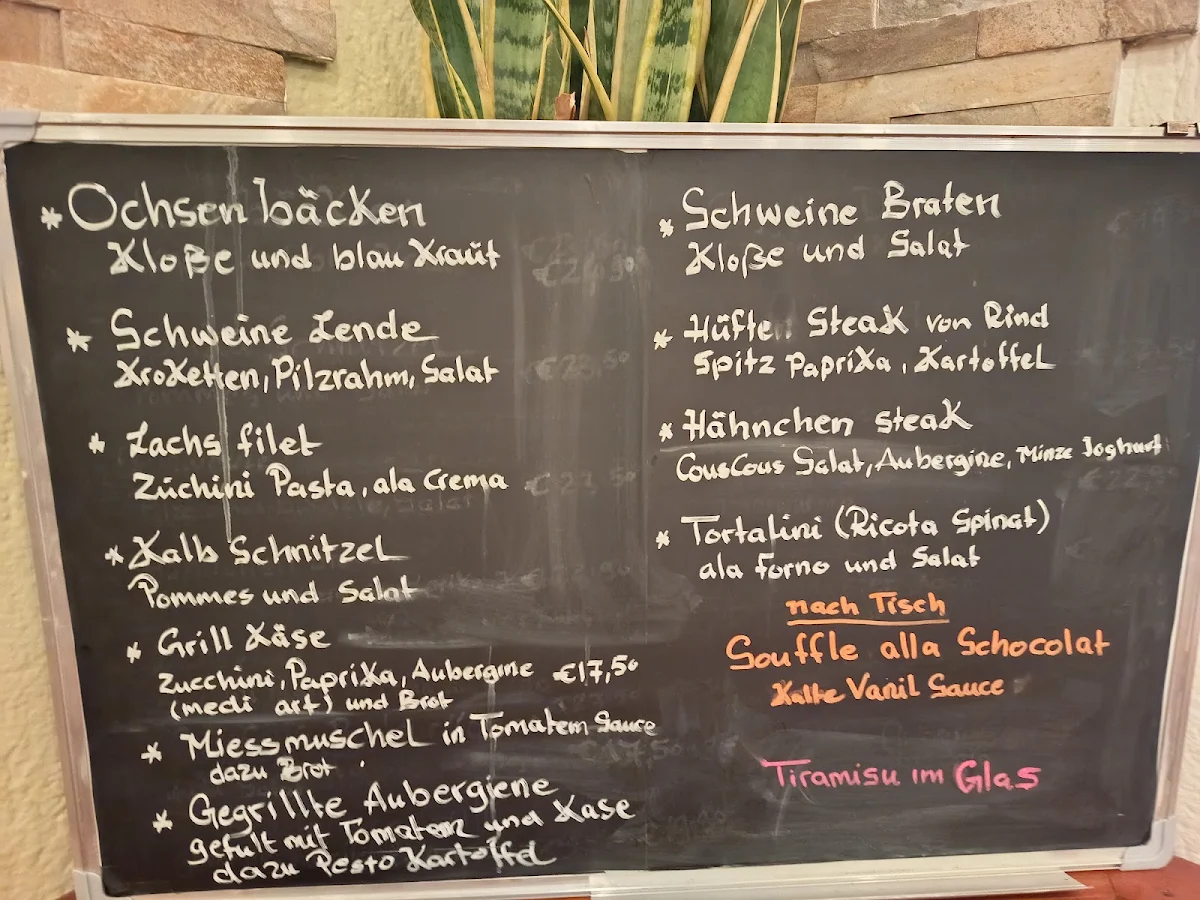 * Ochsen bäcken
Kloße und blau Kraut
* Schweine Lende
Kroketten, Pilzrahm, Salat
* Lachs filet
Züchini Pasta, ala Crema
* Kalb Schnitzel
Pommes und Salat
* Grill Käse
Zucchini, Paprika, Aubergine €17,50
(medi art) und Brot
* Miessmuschel in Tomatem Sauce
dazu Brot
* Gegrillte Aubergiene
gefült mit Tomatem und Kase
dazu Pesto Kartoffel
* Schweine Braten
Kloße und Salat
* Hüften Steak von Rind
Spitz Paprika, Kartoffel
* Hähnchen steak
CousCous Salat, Aubergine, Minze Joghurt
* Tortalini (Ricota Spinat)
ala Forno und Salat
nach Tisch
Souffle alla Schocolat
Kalte Vanil Sauce
Tiramisu im Glas